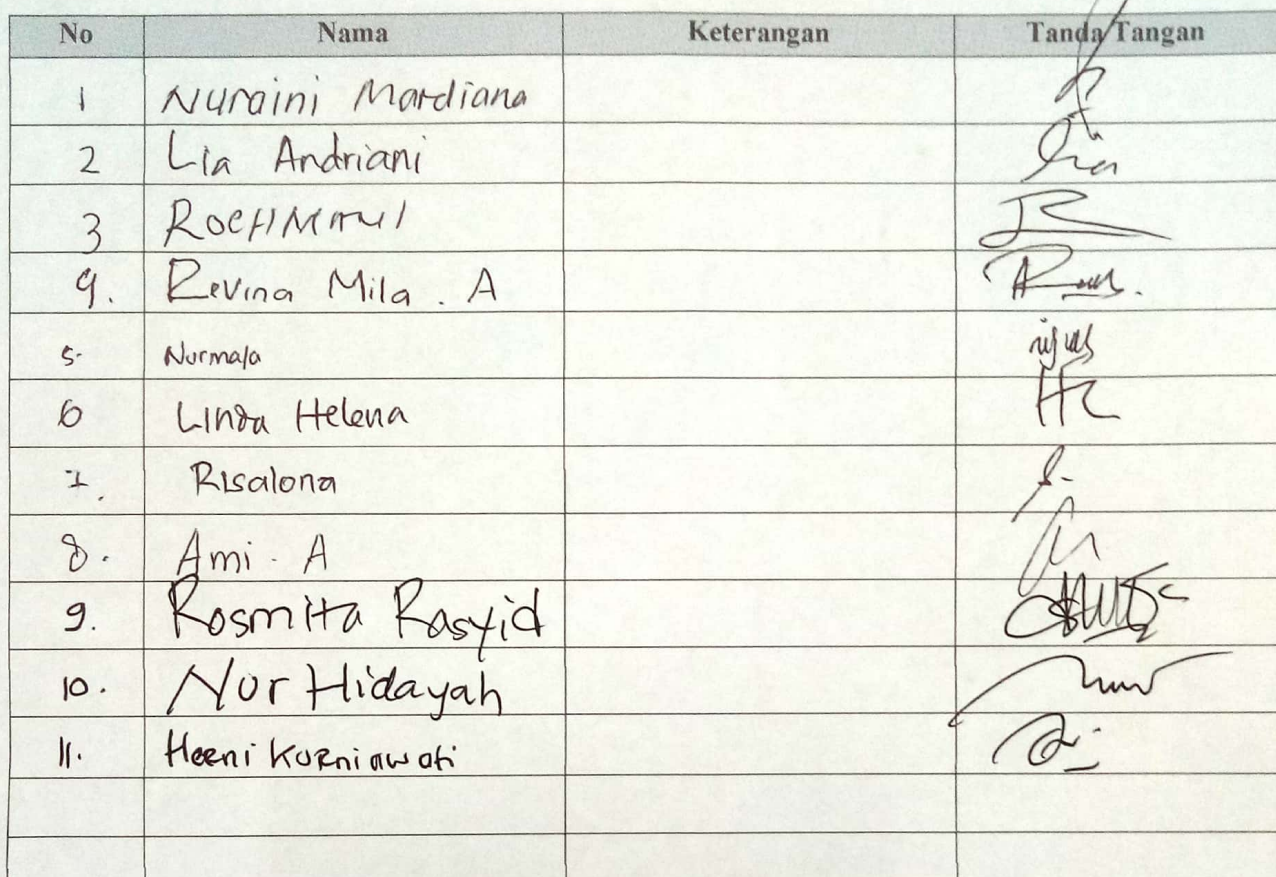 No Nama Keterangan Tanda Tangan
1 Nuraini Mardiana
2 Lia Andriani
3
4. Revina Mila . A
5. Nurmala
6 Linda Helena
7. Risalona
8. Ami . A
9. Rosmita Rasyid
10. Nur Hidayah
11. Heeni Kurniawati